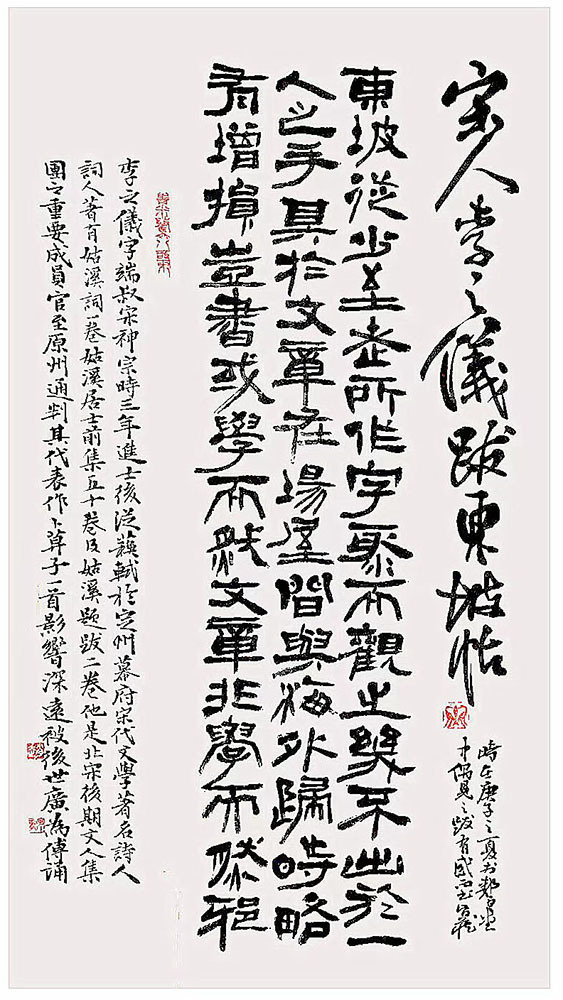 宋人李之儀跋東坡帖
時在庚子之夏
中偶見之跋有感
東坡從少至老所作字聚而觀之幾不出於一
人之手其於文章在場屋間與海外歸時略
有增損豈書或學而然文章非學而然邪
李之儀字端叔宋神宗時三年進士後從蘇軾於定州幕府宋代文學著名詩人
詞人著有姑溪詞一卷姑溪居士前集五十卷及姑溪題跋二卷他是北宋後期文人集
團之重要成員官至原州通判其代表作卜算子一首影響深遠被後世廣為傳誦